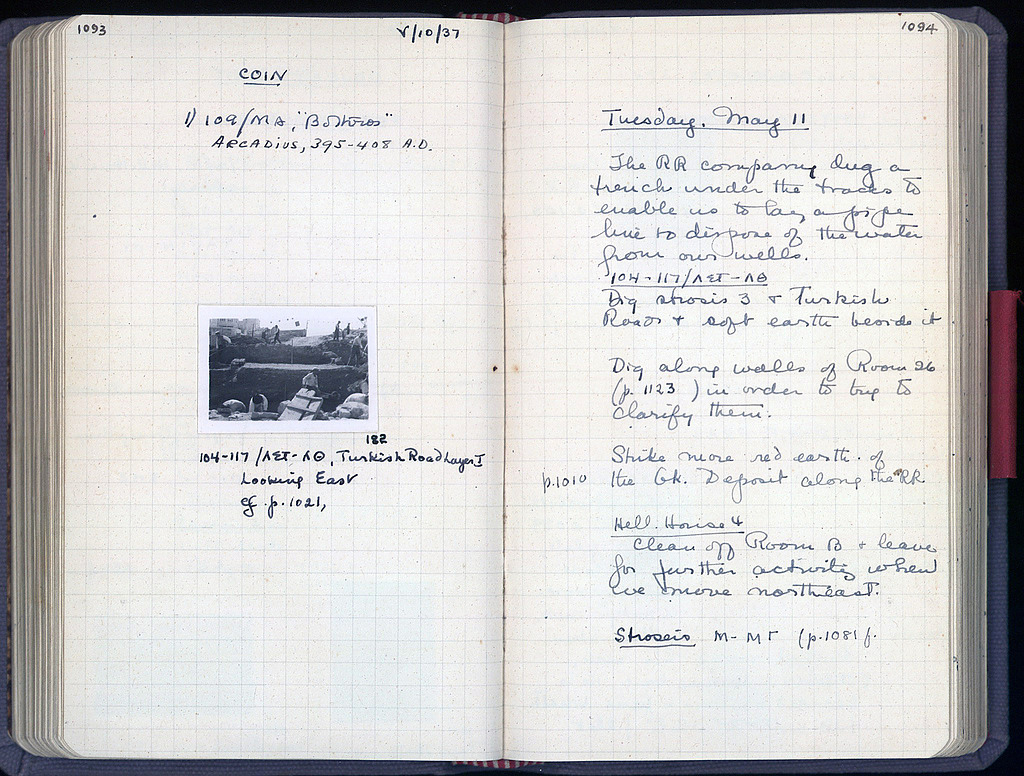 1093
V/10/37
COIN
1) 109/ΜΔ, "Bothros"
ARCADIUS, 395-408 A.D.
182
104-117/ΛΣΤ-ΛΘ, Turkish Road Layer I
Looking East
cf. p. 1021,
1094
Tuesday, May 11
The RR company dug a
trench under the tracks to
enable us to lay a pipe
line to dispose of the water
from our wells.
104-117/ΛΣΤ-ΛΘ
Dig strosis 3 & Turkish
Road & soft earth beside it
Dig along walls of Room 26
(p. 1123 ) in order to try to
clarify them.
Strike more red earth of
p.1010 the Gk. Deposit along the RR
Hell. House 4
Clean off Room B & leave
for further activity when
we move northeast.
Stroseis M-MΓ (p.1081 f.